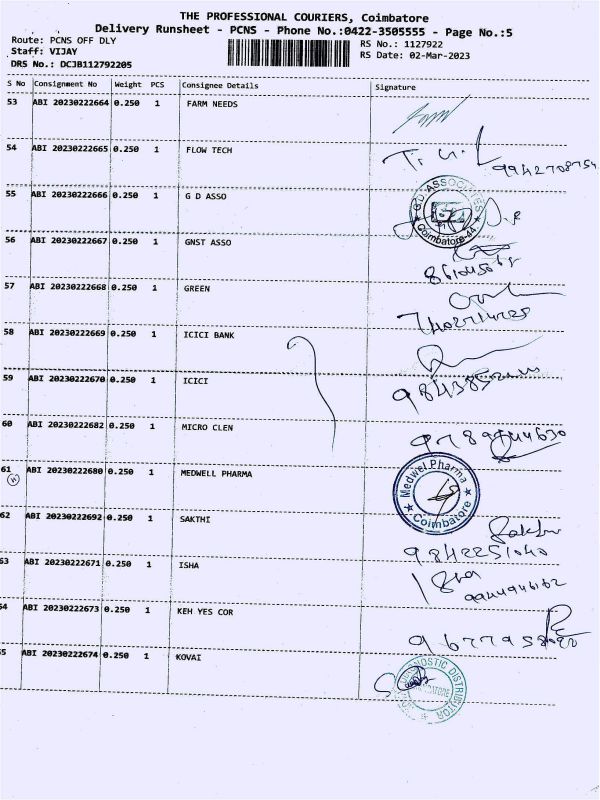 THE PROFESSIONAL COURIERS, Coimbatore
Delivery Runsheet - PCNS - Phone No.:0422-3505555 - Page No.:5
Route: PCNS OFF DLY
Staff: VIJAY
DRS No.: DCJB112792205
RS No.: 1127922
RS Date: 02-Mar-2023
S No Consignment No Weight PCS Consignee Details Signature
53 ABI 20230222664 0.250 1 FARM NEEDS
54 ABI 20230222665 0.250 1 FLOW TECH
9942708754
55 ABI 20230222666 0.250 1 G D ASSO
G.D. ASSOCIATES
Coimbatore-44
56 ABI 20230222667 0.250 1 GNST ASSO
57 ABI 20230222668 0.250 1 GREEN
58 ABI 20230222669 0.250 1 ICICI BANK
59 ABI 20230222670 0.250 1 ICICI
60 ABI 20230222682 0.250 1 MICRO CLEN
9789944630
61 ABI 20230222680 0.250 1 MEDWELL PHARMA
Medwel.Pharma
Coimbatore
62 ABI 20230222692 0.250 1 SAKTHI
9842251040
63 ABI 20230222671 0.250 1 ISHA
Isha
9944946162
64 ABI 20230222673 0.250 1 KEH YES COR
65 ABI 20230222674 0.250 1 KOVAI
DIAGNOSTIC DISTRIBUTOR